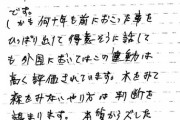 です。
しかも何十年も前におこった事を
ひっぱり出して得意そうに話して
も外国においてはこの運動は
高く評価されています。木をみて
森をみないやり方は判断を
誤まります。本質からズレた